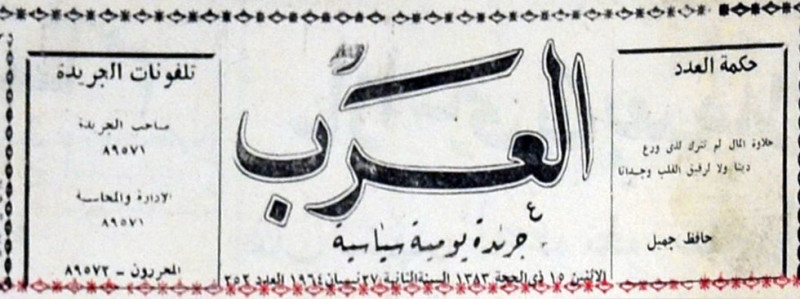 حكمة العدد
حلاوة المال لم تترك لذى ورع
دينا ولا لرقيق القلب وجدانا
حافظ جميل
العرب
جريدة يومية سياسية
الاثنين ١٥ ذي الحجة ١٣٨٣ السنة الثانية ٢٧ نيسان ١٩٦٤ العدد ٢٥٢
تلفونات الجريدة
صاحب الجريدة
٨٩٥٧١
الادارة والمحاسبة
٨٩٥٧١
المحررون - ٨٩٥٧٢